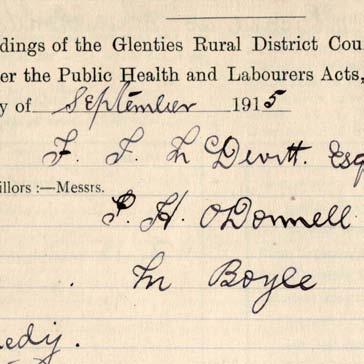 dings of the Glenties Rural District Cou
er the Public Health and Labourers Acts,
y of September 1915
F. F. McDevitt. Esq
illors :—Messrs.
P. H. O'Donnell
M Boyle
nedy.